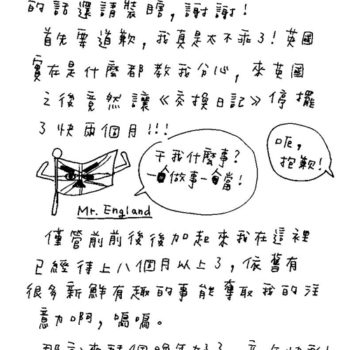 的話還請裝瞎，謝謝！
首先要道歉，我真是太不乖了！英國
實在是什麼都教我分心，來英國
之後竟然讓《交換日記》停擺
了快兩個月！！！
干我什麼事？
一人做事一人當！
呃，
抱歉！
Mr. England
儘管前前後後加起來我在這裡
已經待上八個月以上了，依舊有
很多新鮮有趣的事能奪取我的注
意力啊，嗝嗝。